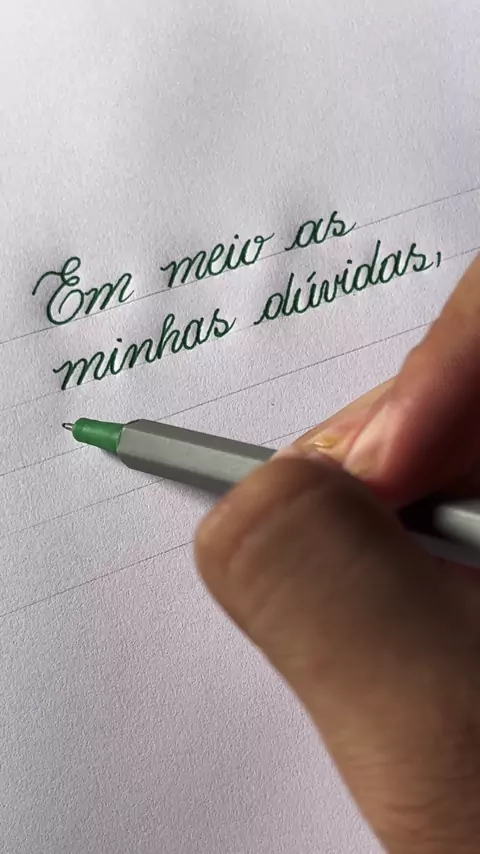 Em meio as
minhas dúvidas,